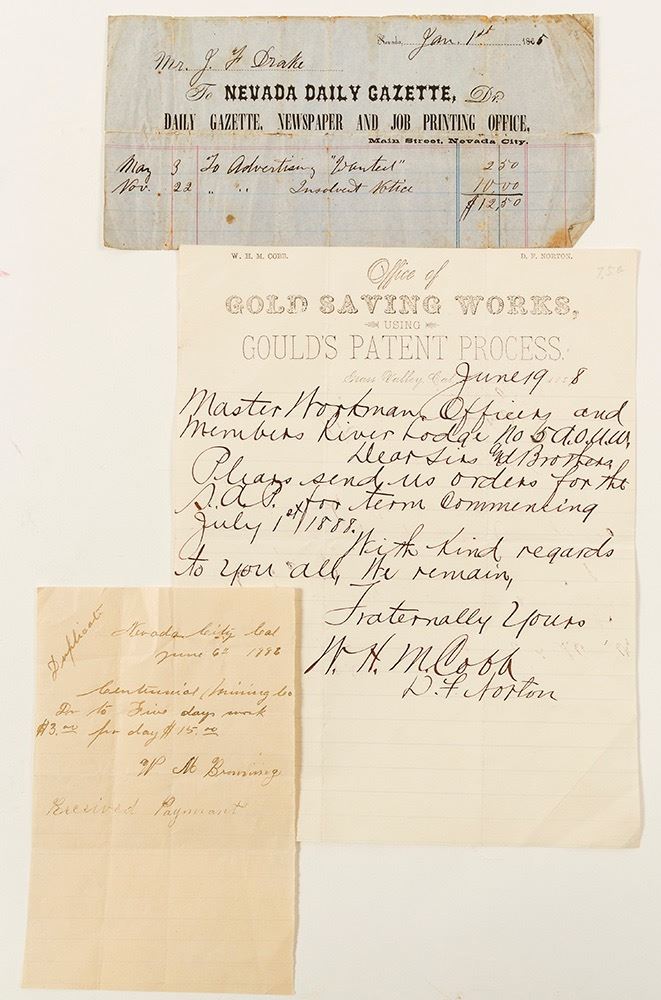 Nevada, Jan. 1st 1865
Mr. J F Drake
To NEVADA DAILY GAZETTE, Dr.
DAILY GAZETTE, NEWSPAPER AND JOB PRINTING OFFICE,
Main Street, Nevada City.
May 3 To Advertising "Wanted" 2 50
Nov. 22 " " Insolvent Notice 10 00
$12,50
W. H. M. COBB. D. F. NORTON.
7,50
Office of
GOLD SAVING WORKS,
USING
GOULD'S PATENT PROCESS.
Grass Valley, Cal. June 19 188 8
Master Workman, Officers and
Members River Lodge No 5 A.O.U.W.
Dear Sirs and Brothers
Pleas send us orders for the
S.A.P. for term commencing
July 1st 1888.
With kind regards
to you all, We remain,
Fraternally Yours
W. H. M. Cobb
D. F Norton
Duplicate
Nevada City Cal
June 6th 1888
Centennial Mining Co
Dr to Five days work
$3.00 per day $15.00
W M Browning
Received Paymant